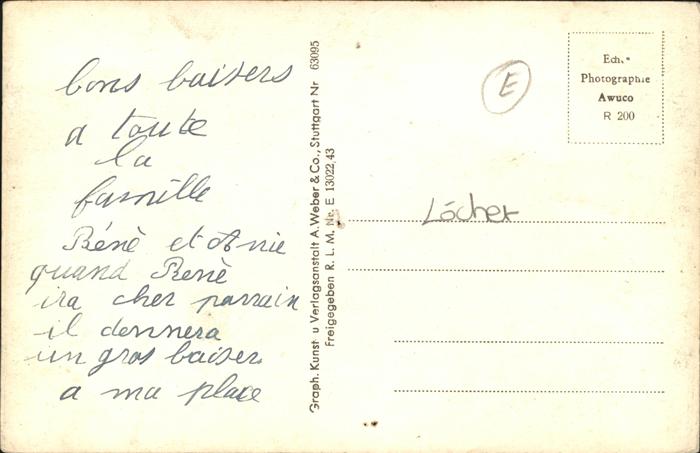 bons baisers
a toute
la
famille
Réné et Anie
quand René
ira cher parrain
il donnera
un gros baiser
a ma place
Graph. Kunst- u Verlagsanstalt A. Weber & Co., Stuttgart Nr 63095
Freigegeben R. L. M. Nr. E 13022,43
E
Ech.
Photographie
Awuco
R 200
Löcher